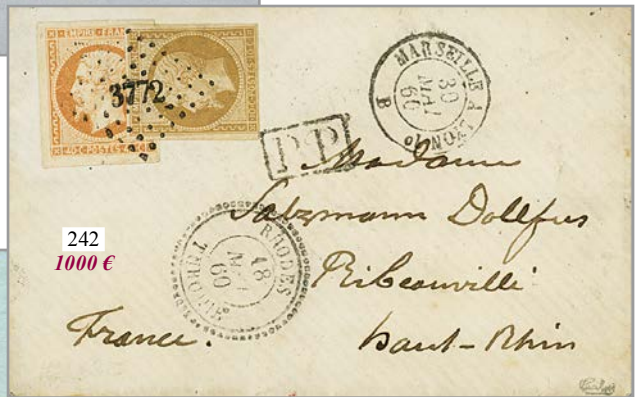 EMPIRE FRAN
40·C·POSTES·4
3772
MARSEILLE A LYON 1°
30
MAI
60
B
P.P.
Madame
Salzmann Dollfus
Ribeauvillé
haut-Rhin
France.
TURQUIE RHODES
18
MAI
60
242
1000 €